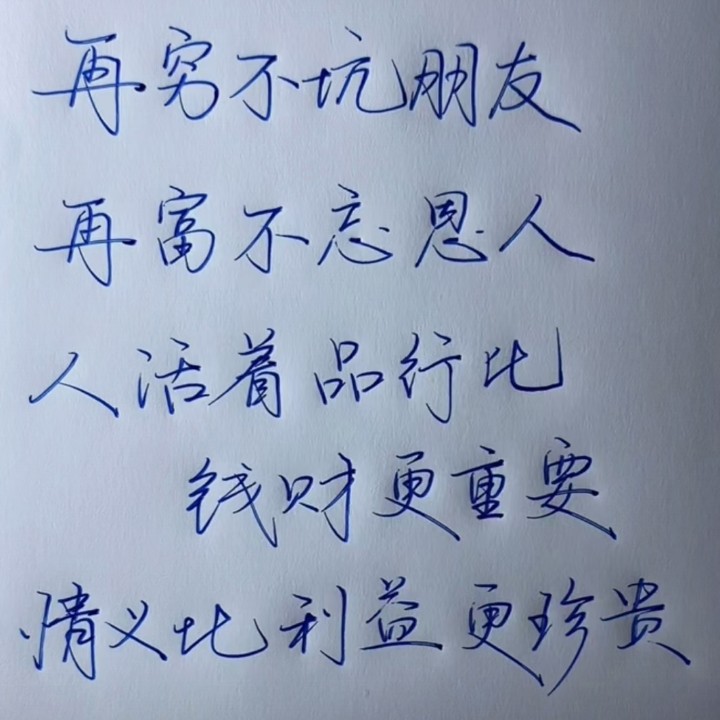 再穷不坑朋友
再富不忘恩人
人活着品行比
钱财更重要
情义比利益更珍贵